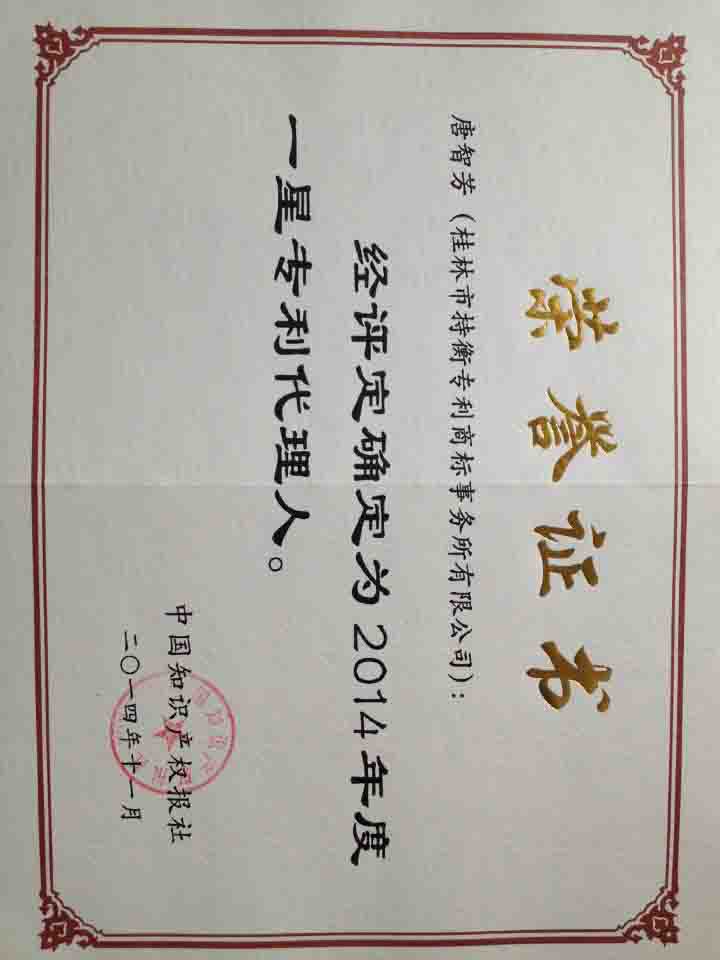 荣誉证书
唐智芳（桂林市持衡专利商标事务所有限公司）：
经评定确定为2014年度
一星专利代理人。
中国知识产权报社
二〇一四年十一月